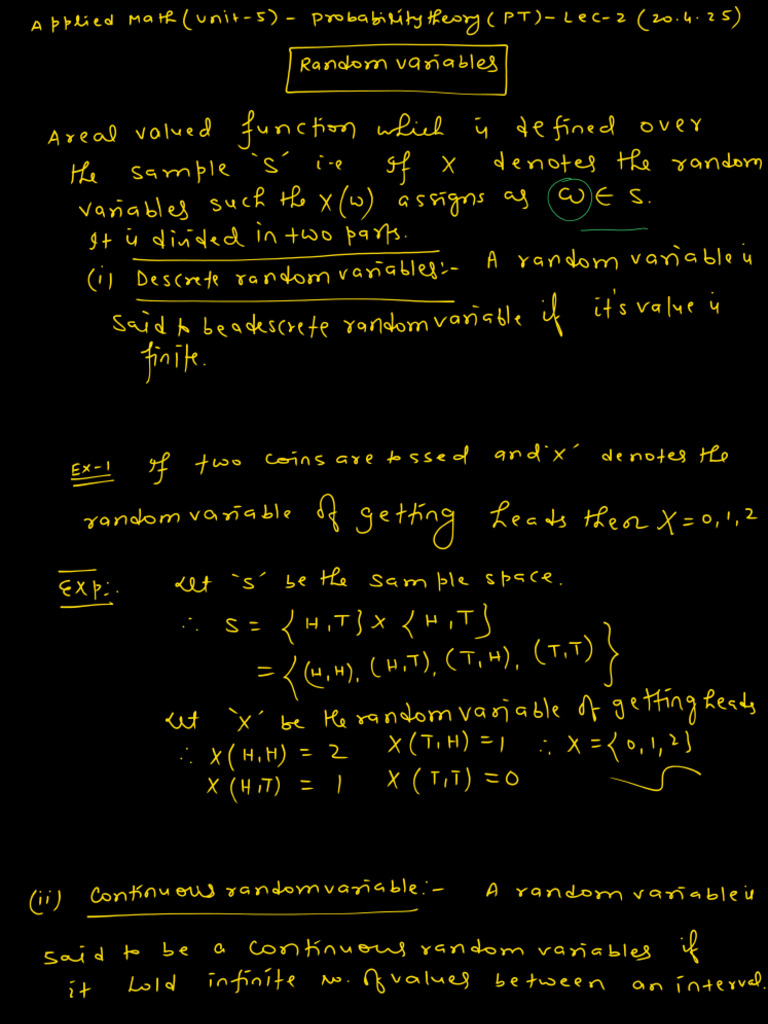 Applied Math (Unit-5) - Probability theory (PT) - Lec-2 (20.4.25)
Random variables
A real valued function which is defined over
the sample 'S' i.e If X denotes the random
variables such the X(ω) assigns as ω ∈ S.
It is divided in two parts.
(i) Descrete random variables:- A random variable is
said to be a descrete random variable if it's value is
finite.
Ex-1 If two coins are tossed and 'X' denotes the
random variable of getting heads then X = 0, 1, 2
Exp:. Let 's' be the sample space.
∴ S = {H, T} X {H, T}
= {(H, H), (H, T), (T, H), (T, T)}
Let 'X' be the random variable of getting heads
∴ X(H, H) = 2 X(T, H) = 1 ∴ X = {0, 1, 2}
X(H, T) = 1 X(T, T) = 0
(ii) Continuous random variable:- A random variable is
said to be a continuous random variables if
it hold infinite no. of values between an interval.